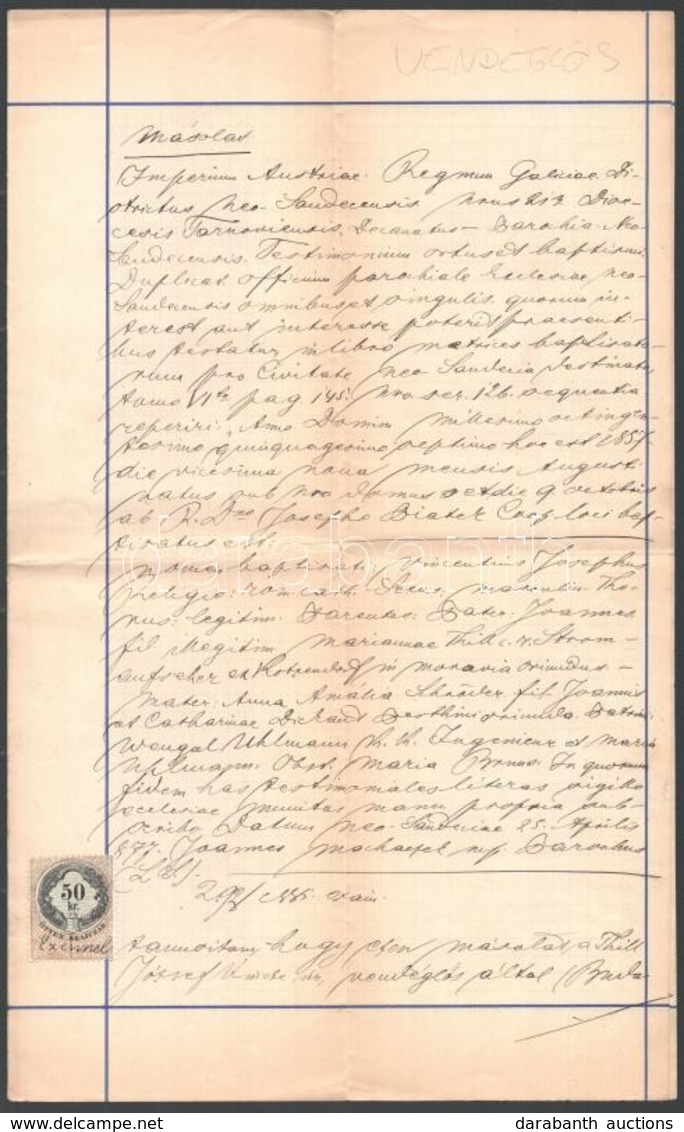 VENDÉGLŐS
Másolat
Imperium Austriae. Regnum Galiciae Di-
strictus Neo-Sandecensis Dioe-
cesis Tarnoviensis, Decanatus - Parochia Neo-
Sandecensis. Testimonium ortus et baptismi.
Duplicat. Officium parochiale Ecclesiae neo-
Sandecensis omnibus et singulis, quorum in-
terest aut interesse poterit praesenti-
bus testatur in libro matrices baptisato-
rum pro Civitate neo-Sandecia destinato,
tomo pag 145. nro ser. 126. sequentia
reperiri: "Anno Domini millesimo octingen-
tesimo quinquagesimo septimo hoc est 1857.
die vicesima nona mensis Augusti
natus sub nro domus et die 9 octobris
ab R. Dno Josepho Biater Coop. loci bap-
tisatus est:
Nomen baptisati: Vincentius Josephus
Religio: róm. cath. Sexus: masculus. Tho-
rus: legitim. Parentes: Pater: Joannes
fil. illegitim. Mariannae Thill c. v. Strom-
ex in Moravia oriundus. -
Mater: Anna Amália Schröder fil. Joannis
et Catharinae oriunda. Patrini:
Wenzal Uhlmann k. k. Ingenieur et Maria
Uhlmann. Obst. Maria In quorum
fidem has testimoniales literas sigillo
ecclesiae munitas manu propria sub-
scribo. Datum neo-Sandeciae 25. Aprilis
877. Joannes mp. Parochus
(L. S.)
50
kr.
ÖTVEN KRAJCZÁR
tanusitom, hogy ezen másolat, a Thill
József vendéglős által (Buda-
darabanth
www.darabanth.com
darabanth auctions